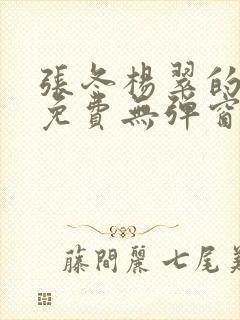 張冬楊翠的
免費無彈窗
藤間麗 七尾美